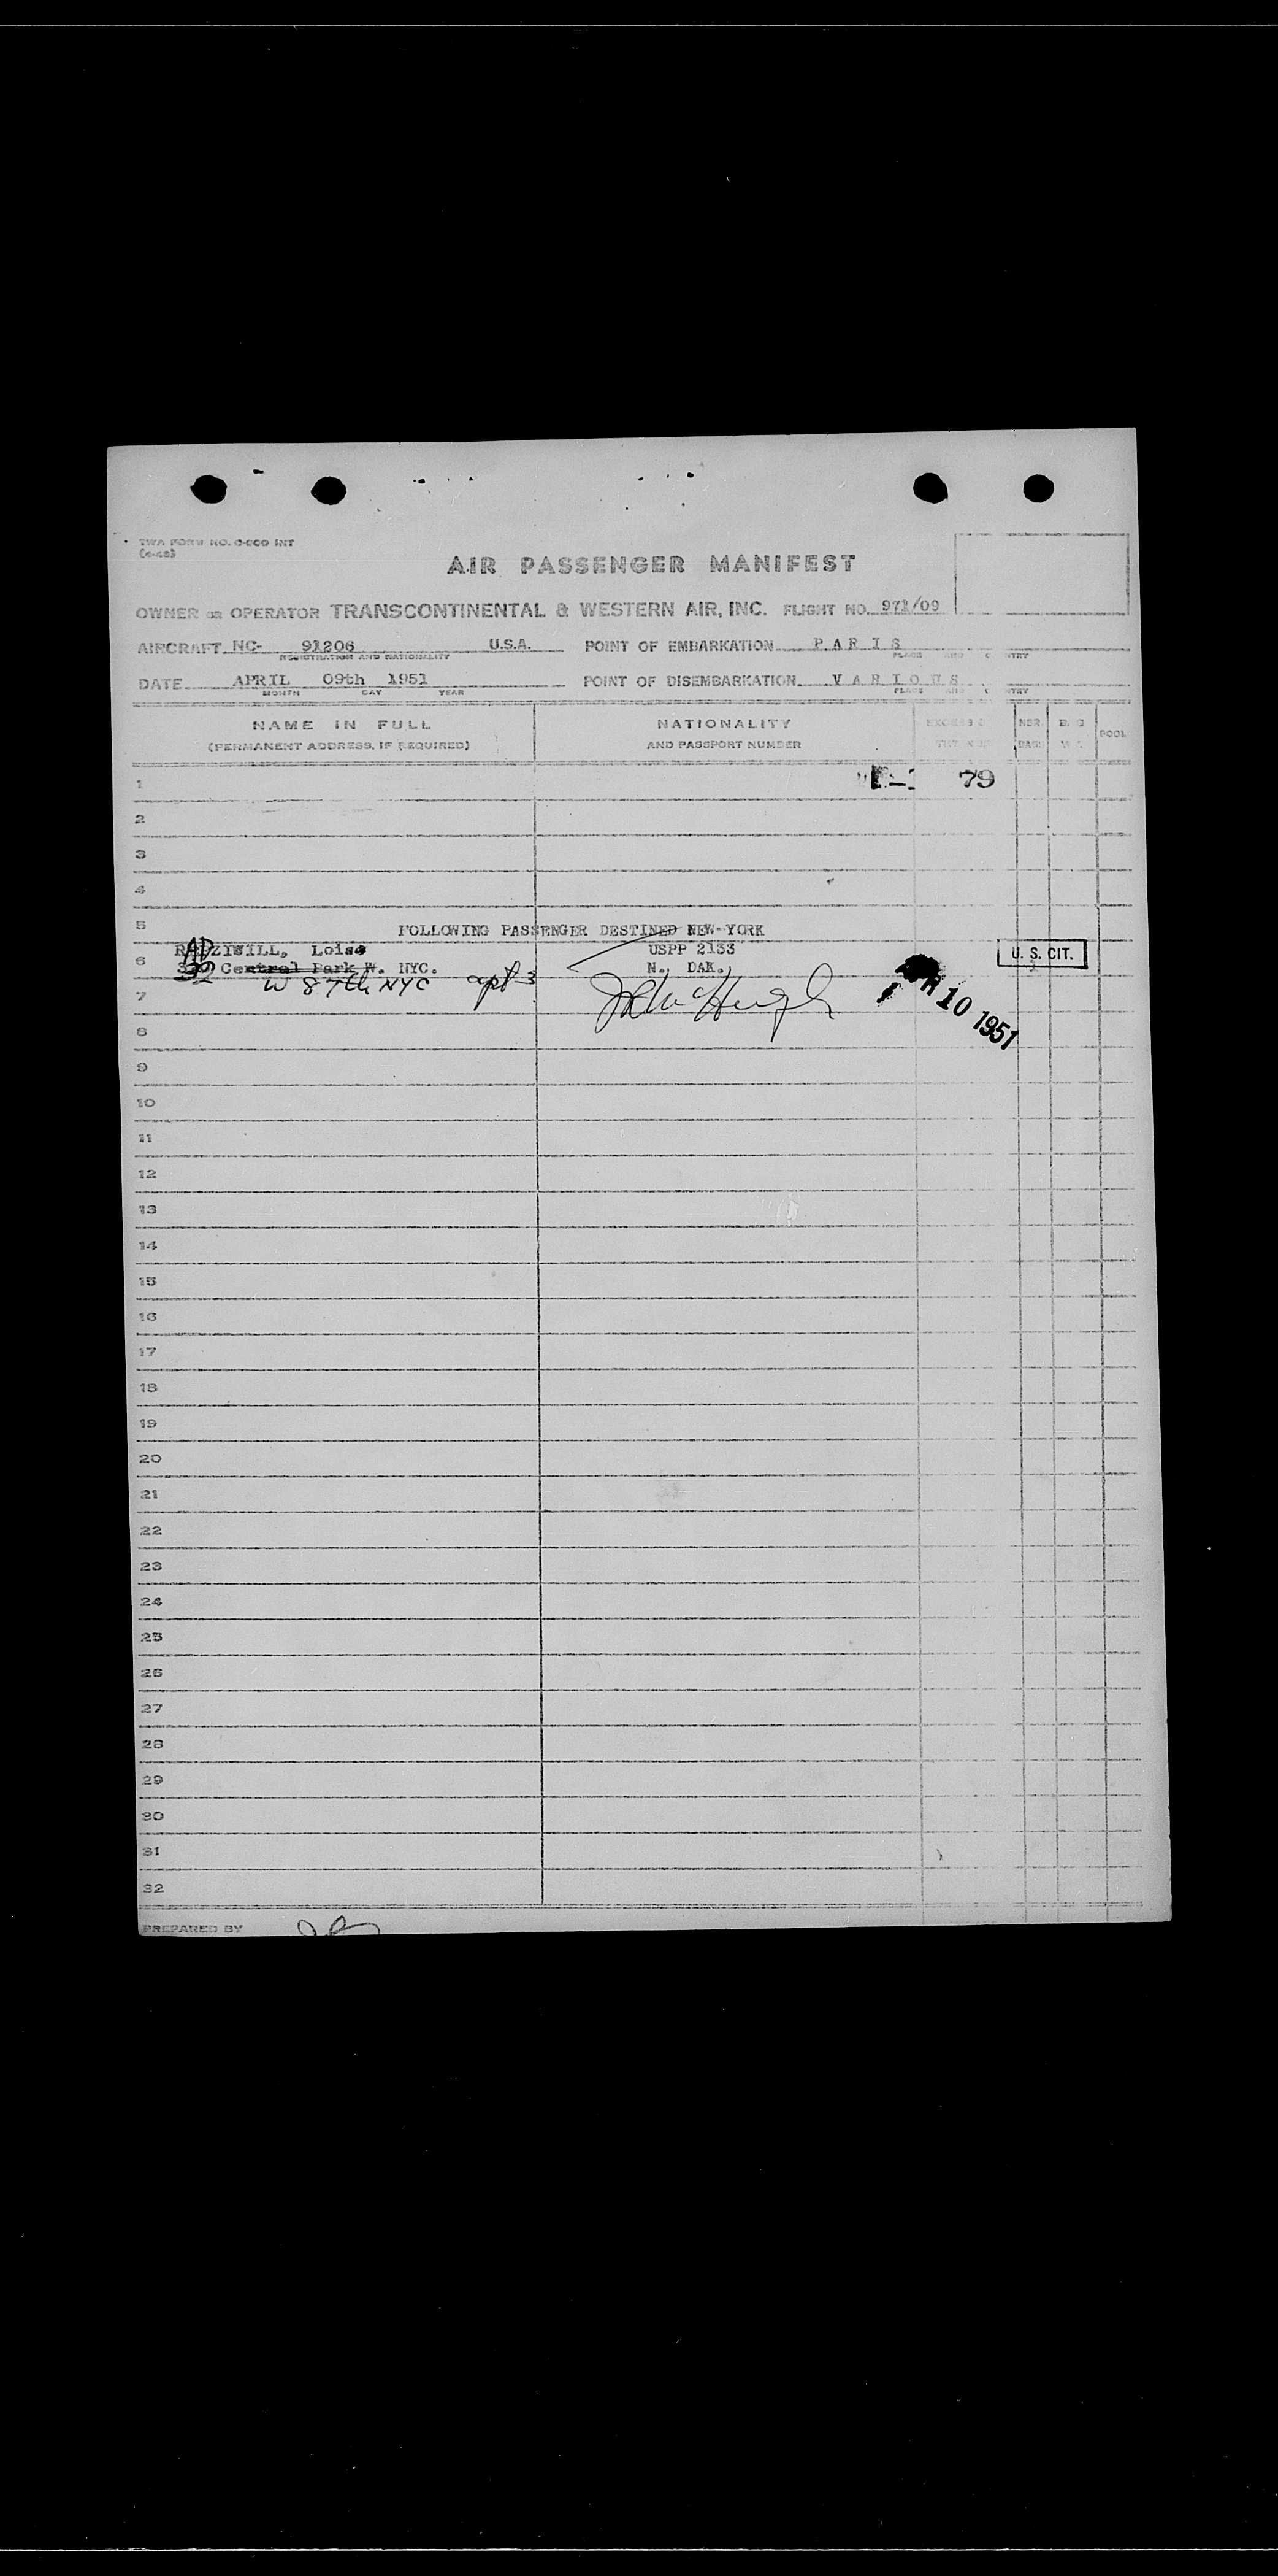 TWA FORM NO. O-800 INT
(4-48)
AIR PASSENGER MANIFEST
OWNER OR OPERATOR TRANSCONTINENTAL & WESTERN AIR, INC. FLIGHT NO. 971/09
AIRCRAFT NC- 91206 U.S.A. POINT OF EMBARKATION PARIS
REGISTRATION AND NATIONALITY PLACE AND
DATE APRIL 09th 1951 POINT OF DISEMBARKATION VARIOUS
MONTH DAY YEAR PLACE AND
NAME IN FULL NATIONALITY EXCESS NBR. BAG
(PERMANENT ADDRESS, IF REQUIRED) AND PASSPORT NUMBER POOL
1 79
2
3
4
5 FOLLOWING PASSENGER DESTINED NEW-YORK
RADZIWILL, Loise USPP 2133
6 Central Park W. NYC. N. DAK. U. S. CIT.
32 W 87th NYC apt 3
7 10 1951
8
9
10
11
12
13
14
15
16
17
18
19
20
21
22
23
24
25
26
27
28
29
30
31
32
PREPARED BY